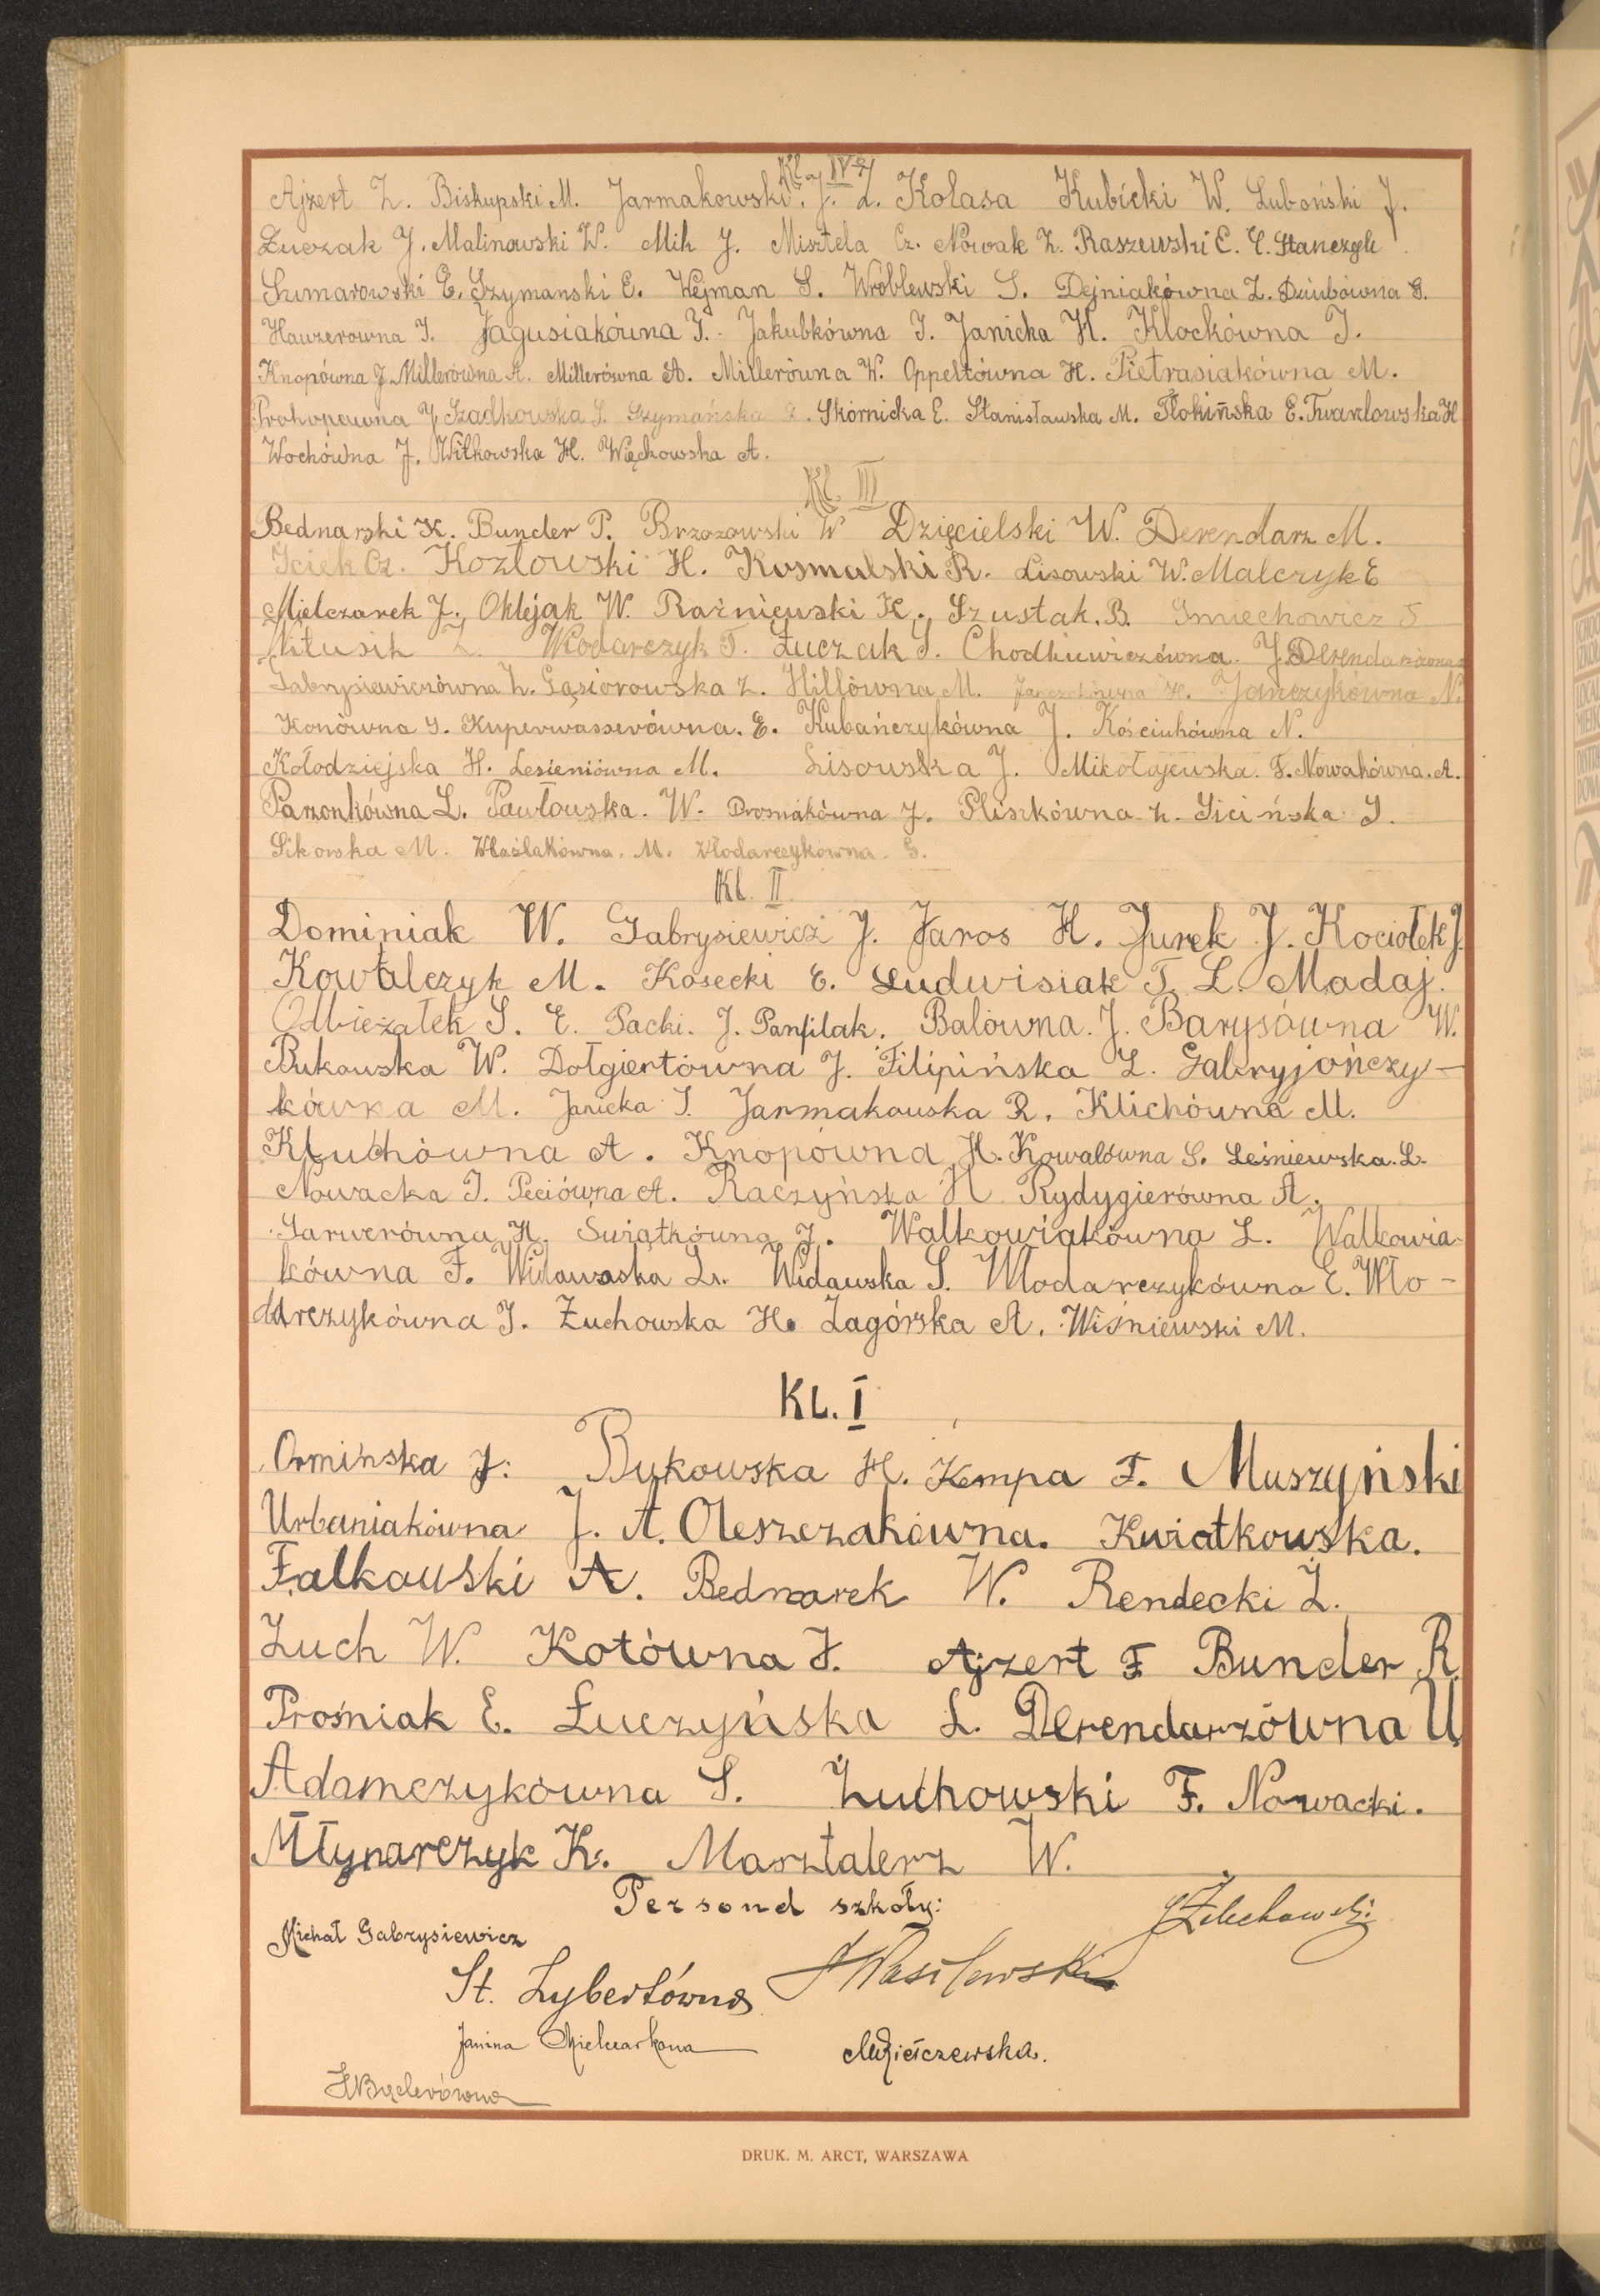 Kl. IV
Ajzert Z. Biskupski M. Jarmakowski. J. L. Kolasa Kubicki W. Luboński J.
Łuczak J. Malinowski W. Mik J. Misztela Cz. Nowak Z. Raszewski E. E. Stanczyk
Szymanski E. Wejman S. Wróblewski S. Dejniakówna Z. Dziubówna G.
Hauzerowna I. Jagusiakówna I. Jakubkówna I. Janicka H. Klockówna I.
Knopówna J. Millerówna A. Millerówna A. Millerówna W. Oppeltówna H. Pietrasiakówna M.
Szadkowska S. Szymańska Z. Skórnicka E. Stanisławska M. Tłokińska E. Twardowska H
Wochówna J. Witkowska H. Więckowska A.
Kl. III
Bednarski K. Bunder P. Brzozowski W Dzięcielski W. Derendarz M.
Iciek Cz. Kozłowski H. Kosmalski R. Lisowski W. Malczyk E
Mielczarek J. Oklejak W. Raźniewski K. Szustak. B. Śmiechowicz S
Witusik Z. Włodarczyk T. Łuczak S. Chodkiewiczówna. J.
Gabrysiewiczówna Z. Gąsiorowska Z. Hillówna M. Janczykówna N.
Konówna I. Kuperwasserówna. E. Kubańczykówna J. Kościukówna N.
Kołodziejska H. Lesieniówna M. Lisowska J. Mikołajewska. F. Nowakówna. A.
Parzonkówna L. Pawłowska. W. Prośniakówna J. Pliszkówna Z. Sicińska S.
Sikowska M. Waślakówna. M. Włodarczykówna. G.
Kl. II
Dominiak W. Gabrysiewicz J. Jaros H. Jurek J. Kociołek J.
Kowalczyk M. Kosecki E. Ludwisiak T. L. Madaj.
Odbieżałek S. E. Packi. J. Panfilak. Balówna. J. Barysówna W.
Bukowska W. Dołgiertówna J. Filipińska Z. Gabryjończy-
kówna M. Janicka I. Jarmakowska R. Klichówna M.
Kluchówna A. Knopówna H. Kowalówna S. Leśniewska. L.
Nowacka I. Peciówna A. Raczyńska H Rydygierówna A.
Sarwerówna H. Świątkówna J. Walkowiakówna L. Walkowia-
kówna F. Widawska Widawska S. Włodarczykówna E. Wło-
darczykówna I. Żuchowska H. Zagórska A. Wiśniewski M.
KL. I
Ormińska J. Bukowska H. Kempa F. Muszyński
Urbaniakówna J. A. Oleszczakówna. Kwiatkowska.
Falkowski A. Bednarek W. Rendecki Z.
Zuch W. Kotówna J. Ajzert F Bunder R.
Prośniak E. Łuczyńska L. Derendarzówna U
Adamczykówna S. Żuchowski F. Nowacki.
Młynarczyk K. Marsztalerz W.
Personel szkoły:
Michał Gabrysiewicz
St. Lybertówna Wasilewski
Janina Mielczarkowa
DRUK. M. ARCT, WARSZAWA